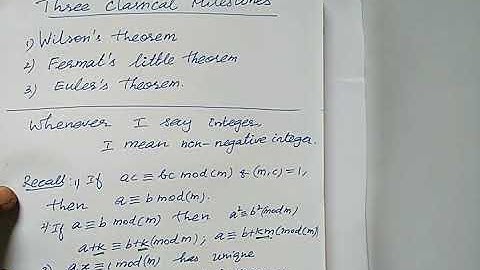 Three Classical Milestones
1) Wilson's theorem
2) Fermat's little theorem
3) Euler's theorem.
Whenever I say Integer,
I mean non-negative integer.
Recall: 1) If ac ≡ bc mod(m) & (m,c) = 1,
then a ≡ b mod(m).
2) If a ≡ b mod(m) then a² ≡ b² (mod m)
a+k ≡ b+k (mod m); a ≡ b+km (mod m)
3) ax ≡ 1 mod(m) has unique